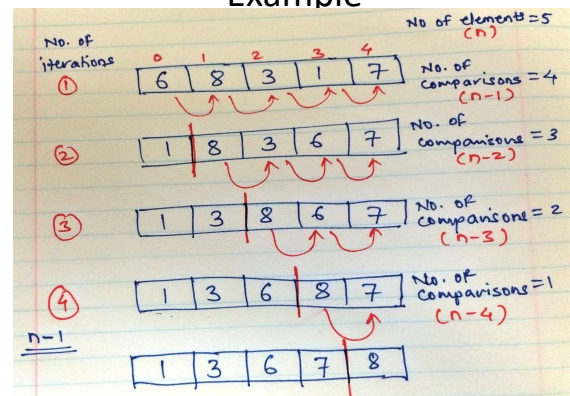 Example
No of elements = 5
(n)
No. of
iterations
0 1 2 3 4
① 6 8 3 1 7
No. of
comparisons = 4
(n-1)
② 1 8 3 6 7
No. of
comparisons = 3
(n-2)
③ 1 3 8 6 7
No. of
comparisons = 2
(n-3)
④ 1 3 6 8 7
No. of
comparisons = 1
(n-4)
n-1
1 3 6 7 8